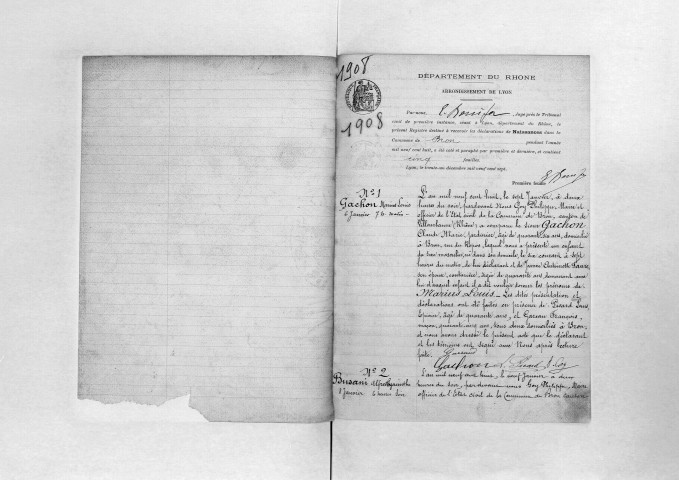 1908
1908
DÉPARTEMENT DU RHONE
ARRONDISSEMENT DE LYON
Par nous, juge près le Tribunal
civil de première instance, séant à Lyon, département du Rhône, le
présent Registre destiné à recevoir les déclarations de Naissances dans la
Commune de Bron pendant l'année
mil neuf cent huit, a été coté et paraphé par première et dernière, et contient
cinq feuilles.
Lyon, le trente-un décembre mil neuf cent sept.
Première feuille
No 1
Gachon Marius Louis
6 Janvier 7 h. matin
L'an mil neuf cent huit, le sept Janvier, à deux
heures du soir, pardevant Nous Goy Philippe, Maire et
officier de l'Etat civil de la Commune de Bron, canton de
Villeurbanne (Rhône) a comparu le sieur Gachon
Claude Marie, jardinier, âgé de quarante ans, domicilié
à Bron, rue du Repos, lequel nous a présenté un enfant
du sexe masculin, né dans son domicile, le six courant à sept
heures du matin, de lui déclarant et de Antoinette
son épouse, couturière, âgée de quarante ans demeurant avec
lui et auquel enfant il a dit vouloir donner les prénoms de
Marius Louis. Les dites présentation et
déclarations ont été faites en présence de
âgé de quarante ans, et François,
maçon, quarante ans, tous deux domiciliés à Bron,
et nous avons dressé le présent acte que le déclarant
et les témoins ont signé avec Nous après lecture
faite.
Gachon
No 2
Busani
8 Janvier
L'an mil neuf cent huit, le neuf Janvier à deux
heures du soir, pardevant nous Goy Philippe, Maire
officier de l'Etat civil de la Commune de Bron canton